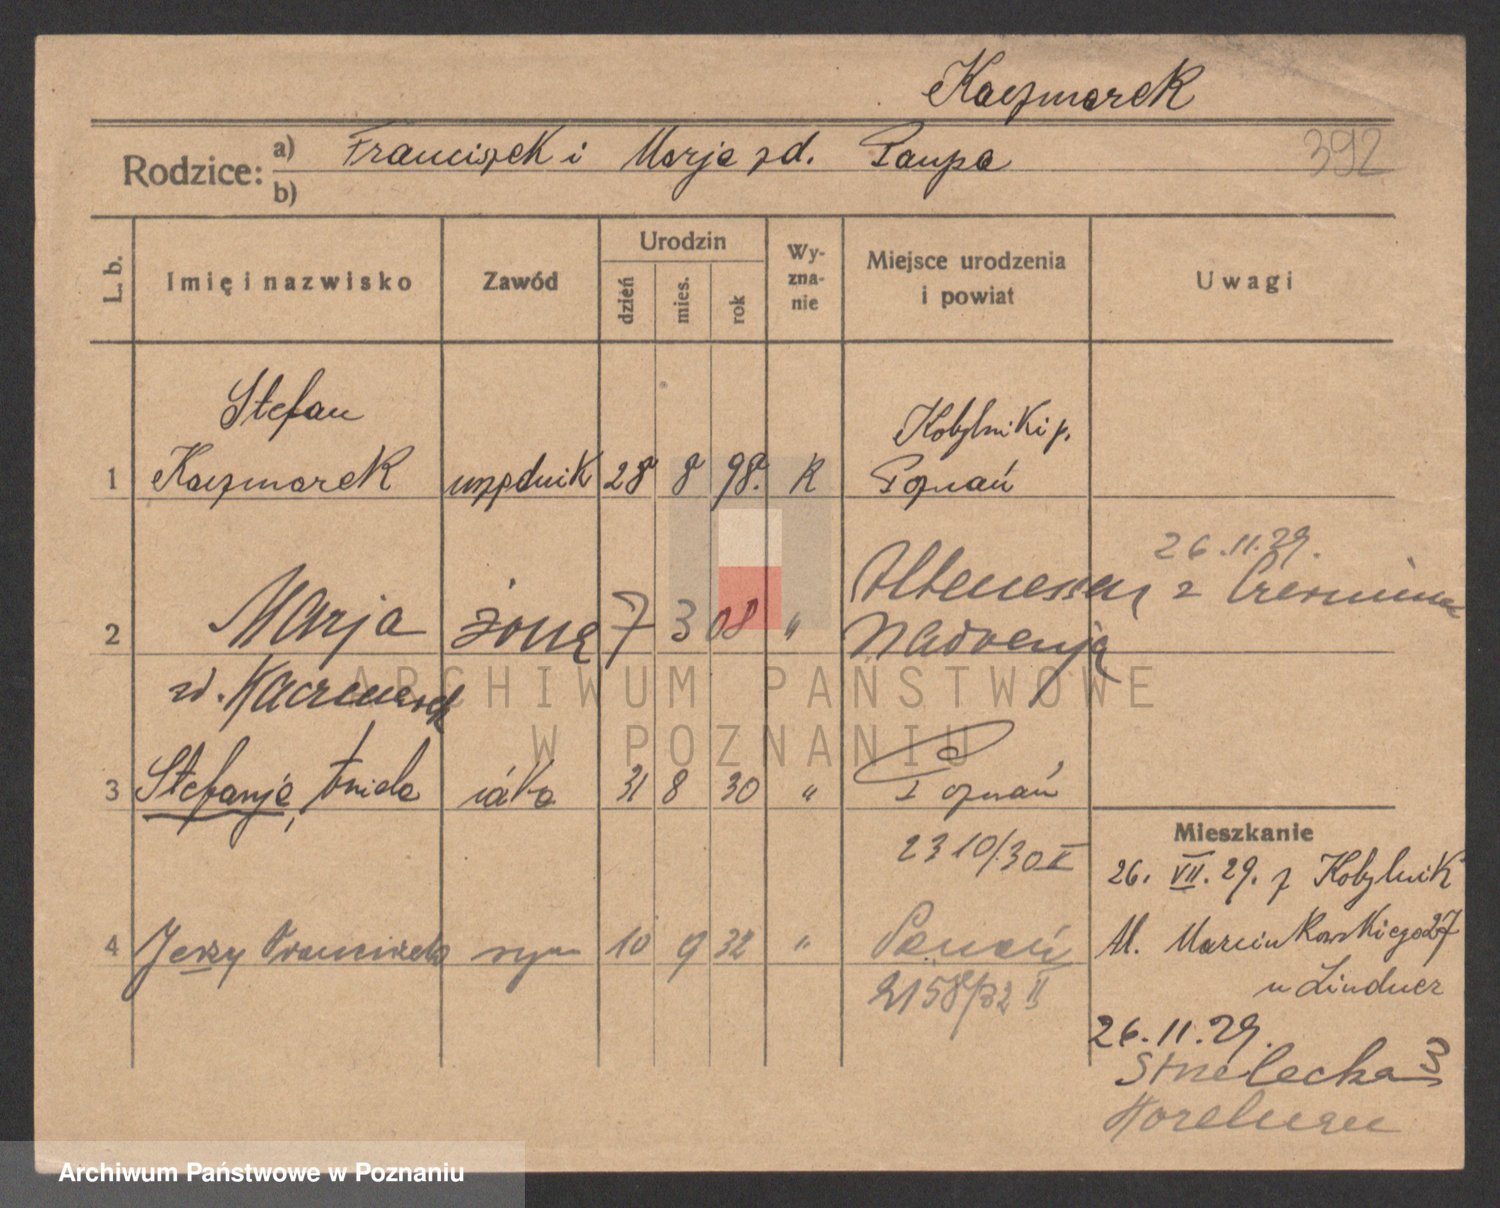 Kaczmarek
392
Rodzice: a) Franciszek i Marja zd. Paupa
b)
L. b. Imię i nazwisko Zawód Urodzin dzień mies. rok Wyznanie Miejsce urodzenia i powiat Uwagi
Stefan Kobylniki p.
1 Kaczmarek urzędnik 28 8 98. R Poznań
26.11.29.
Altenessen z
2 Marja żona 7 3 08 " Nadrenja
zd. Kaczmarek
3 Stefanja, 31 8 30 " Poznań
Mieszkanie
2310/30 II
26. VII. 29. z Kobylnik
4 Jerzy Franciszek syn 10 9 32 " Poznań
Al. Marcinkowskiego 27
2158/32 II
u Lindner
26.11.29.
Strzelecka 3
ARCHIWUM PAŃSTWOWE
W POZNANIU
Archiwum Państwowe w Poznaniu